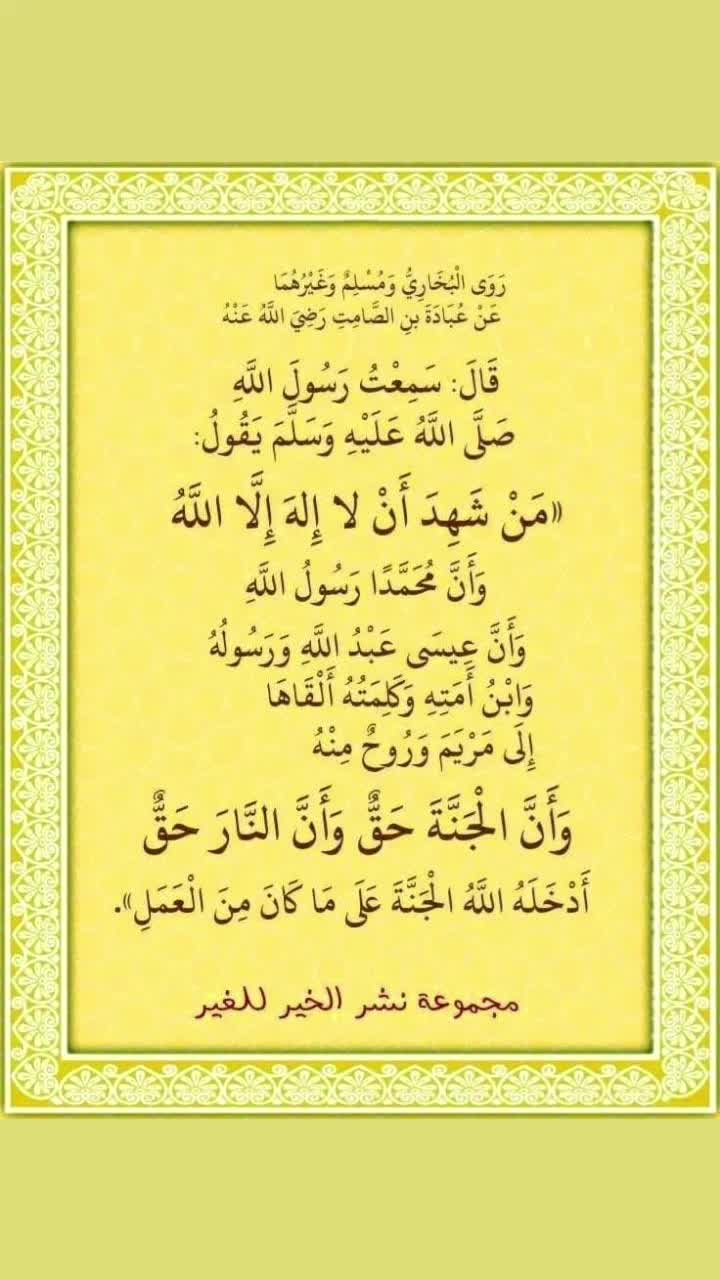 رَوَى الْبُخَارِيُّ وَمُسْلِمٌ وَغَيْرُهُمَا
عَنْ عُبَادَةَ بنِ الصَّامِتِ رَضِيَ اللَّهُ عَنْهُ
قَالَ: سَمِعْتُ رَسُولَ اللَّهِ
صَلَّى اللَّهُ عَلَيْهِ وَسَلَّمَ يَقُولُ:
«مَنْ شَهِدَ أَنْ لا إِلهَ إِلَّا اللَّهُ
وَأَنَّ مُحَمَّدًا رَسُولُ اللَّهِ
وَأَنَّ عِيسَى عَبْدُ اللَّهِ وَرَسُولُهُ
وَابْنُ أَمَتِهِ وَكَلِمَتُهُ أَلْقَاهَا
إِلَى مَرْيَمَ وَرُوحٌ مِنْهُ
وَأَنَّ الْجَنَّةَ حَقٌّ وَأَنَّ النَّارَ حَقٌّ
أَدْخَلَهُ اللَّهُ الْجَنَّةَ عَلَى مَا كَانَ مِنَ الْعَمَلِ».
مجموعة نشر الخير للغير